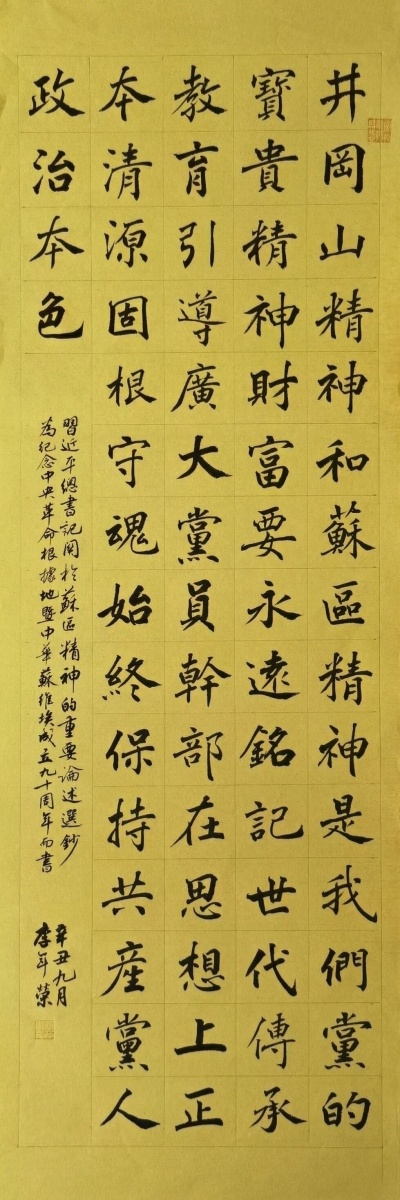 井岡山精神和蘇區精神是我們黨的
寶貴精神財富要永遠銘記世代傳承
教育引導廣大黨員幹部在思想上正
本清源固根守魂始終保持共産黨人
政治本色
習近平總書記関於蘇區精神的重要論述選鈔
為紀念中央革命根據地暨中華蘇維埃成立九十周年而書
辛丑九月
李年榮